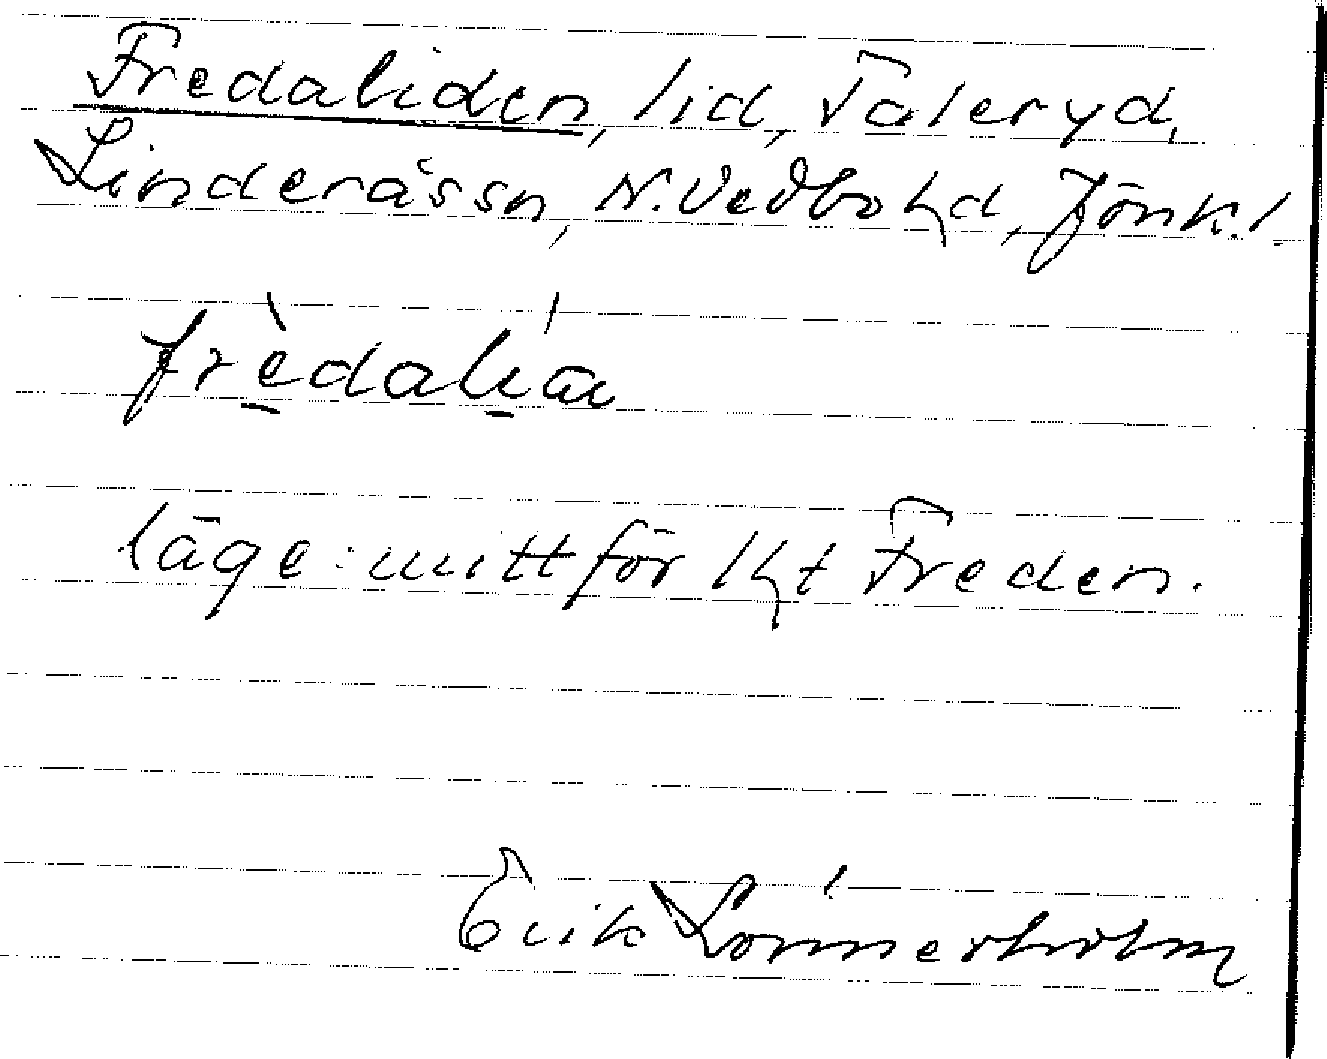 Fredaliden, lid, Taleryd,
Linderåssn, N.Vedbohd, Jönk.l.
frèdalián
läge: mittför lht Freden.
Erik Lönnerholm